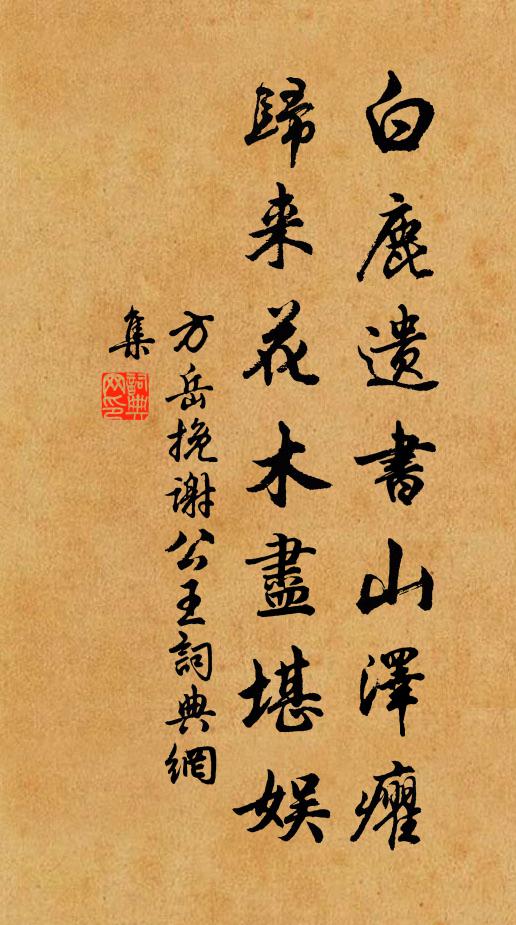 白鹿遺書山澤癯
歸来花木盡堪娱
方岳挽谢公王詞典網
集
詞典網印